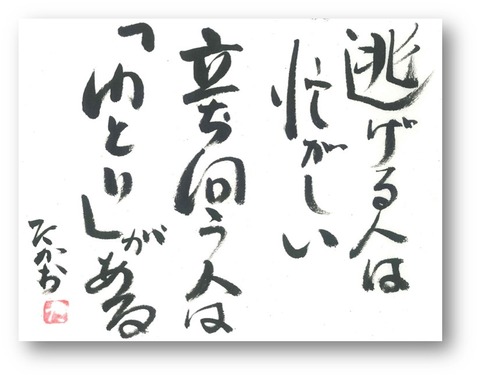 逃げる人は
忙がしい
立ち向う人は
「ゆとり」がある
たかお